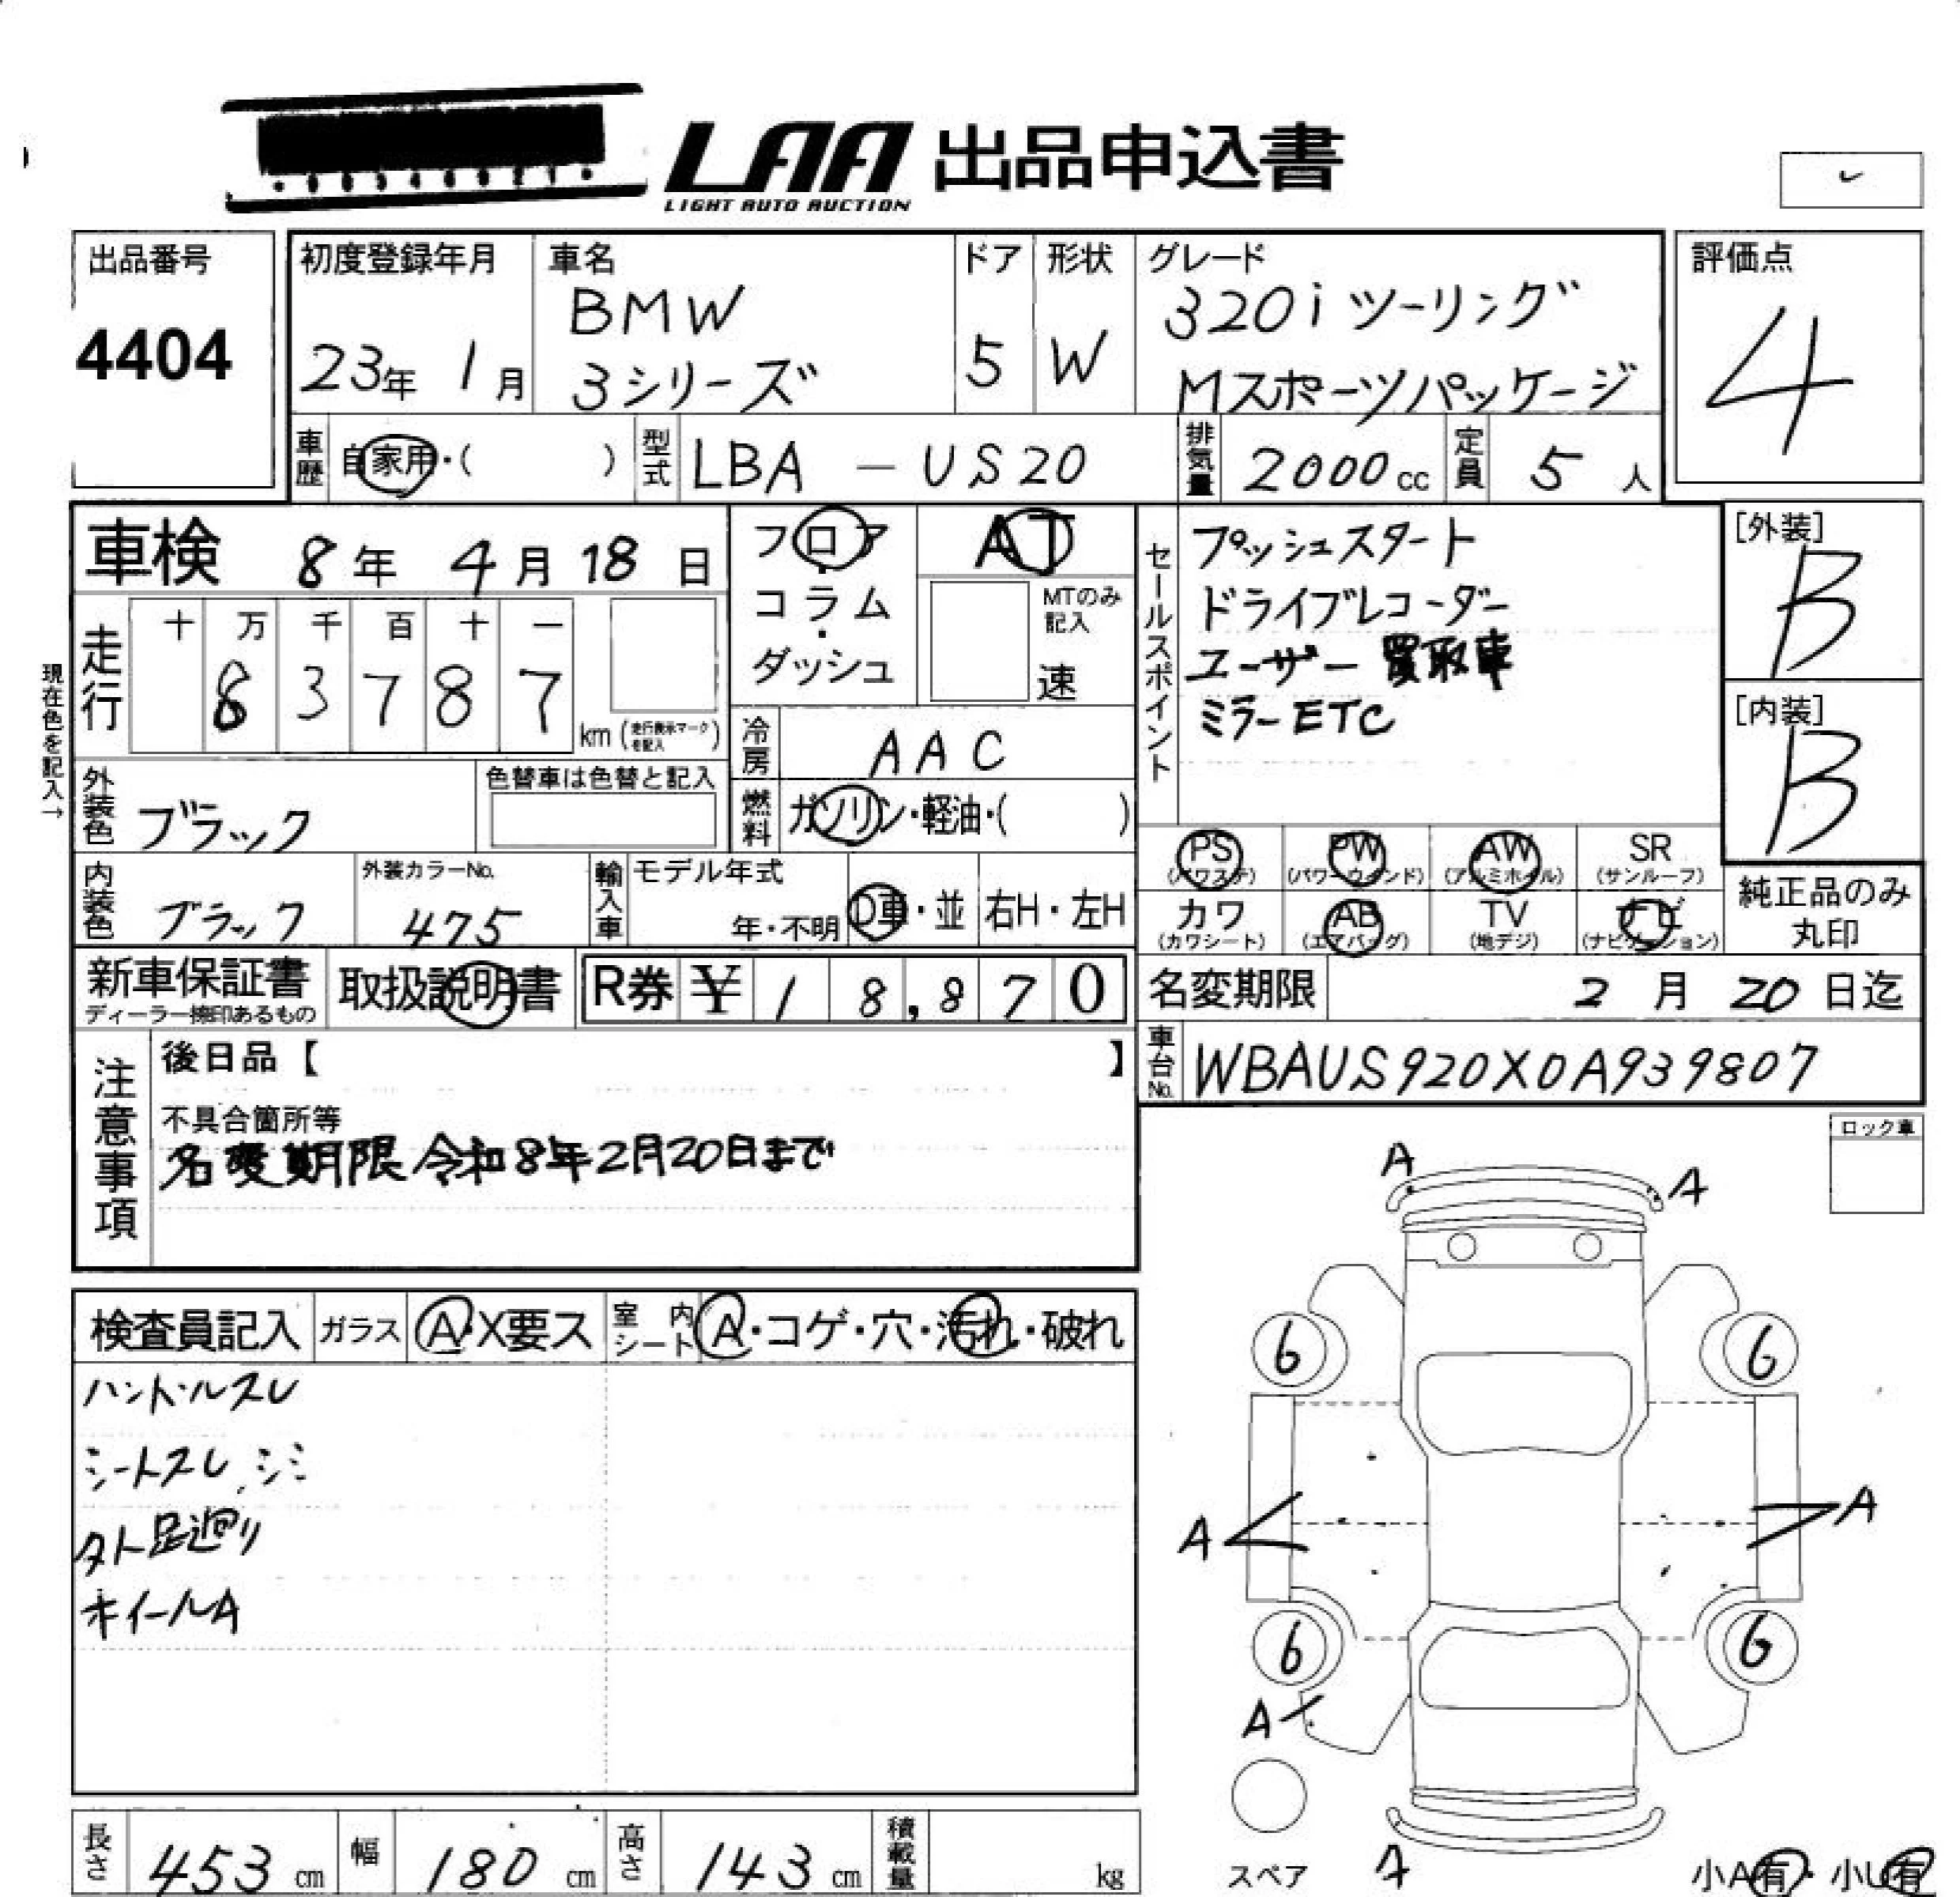 LAA 出品申込書
LIGHT AUTO AUCTION
出品番号
4404
初度登録年月
23年 1月
車名
BMW
3シリーズ
ドア
5
形状
W
グレード
320i ツーリング
Mスポーツパッケージ
評価点
4
車歴 自家用・( )
型式 LBA - US20
排気量 2000cc
定員 5人
車検 8年 4月 18日
現在色を記入→
走行
十 万 千 百 十 一
8 3 7 8 7
km (走行表示マークを記入)
フロア・コラム・ダッシュ
AT
MTのみ記入
速
冷房 AAC
燃料 ガソリン・軽油・( )
外装色 ブラック
色替車は色替と記入
内装色 ブラック
外装カラーNo.
475
輸入車
モデル年式
年・不明
D車・並
右H・左H
セールスポイント
プッシュスタート
ドライブレコーダー
ユーザー買取車
ミラーETC
[外装]
B
[内装]
B
PS (パワステ)
PW (パワーウインド)
AW (アルミホイル)
SR (サンルーフ)
カワ (カワシート)
AB (エアバッグ)
TV (地デジ)
ナビ (ナビゲーション)
純正品のみ丸印
新車保証書
ディーラー捺印あるもの
取扱説明書
R券 ¥ 18,870
名変期限 2月 20日迄
車台No. WBAUS920X0A939807
注意事項
後日品【 】
不具合箇所等
名変期限 令和8年2月20日まで
ロック車
検査員記入
ガラス A・X要ス
室内シート A・コゲ・穴・汚れ・破れ
ハンドルスレ
シートスレ、シミ
タト足廻り
ホイールA
A
A
6
6
A
A
6
6
A
A
スペア
小A有・小U有
長さ 453cm
幅 180cm
高さ 143cm
積載量 kg